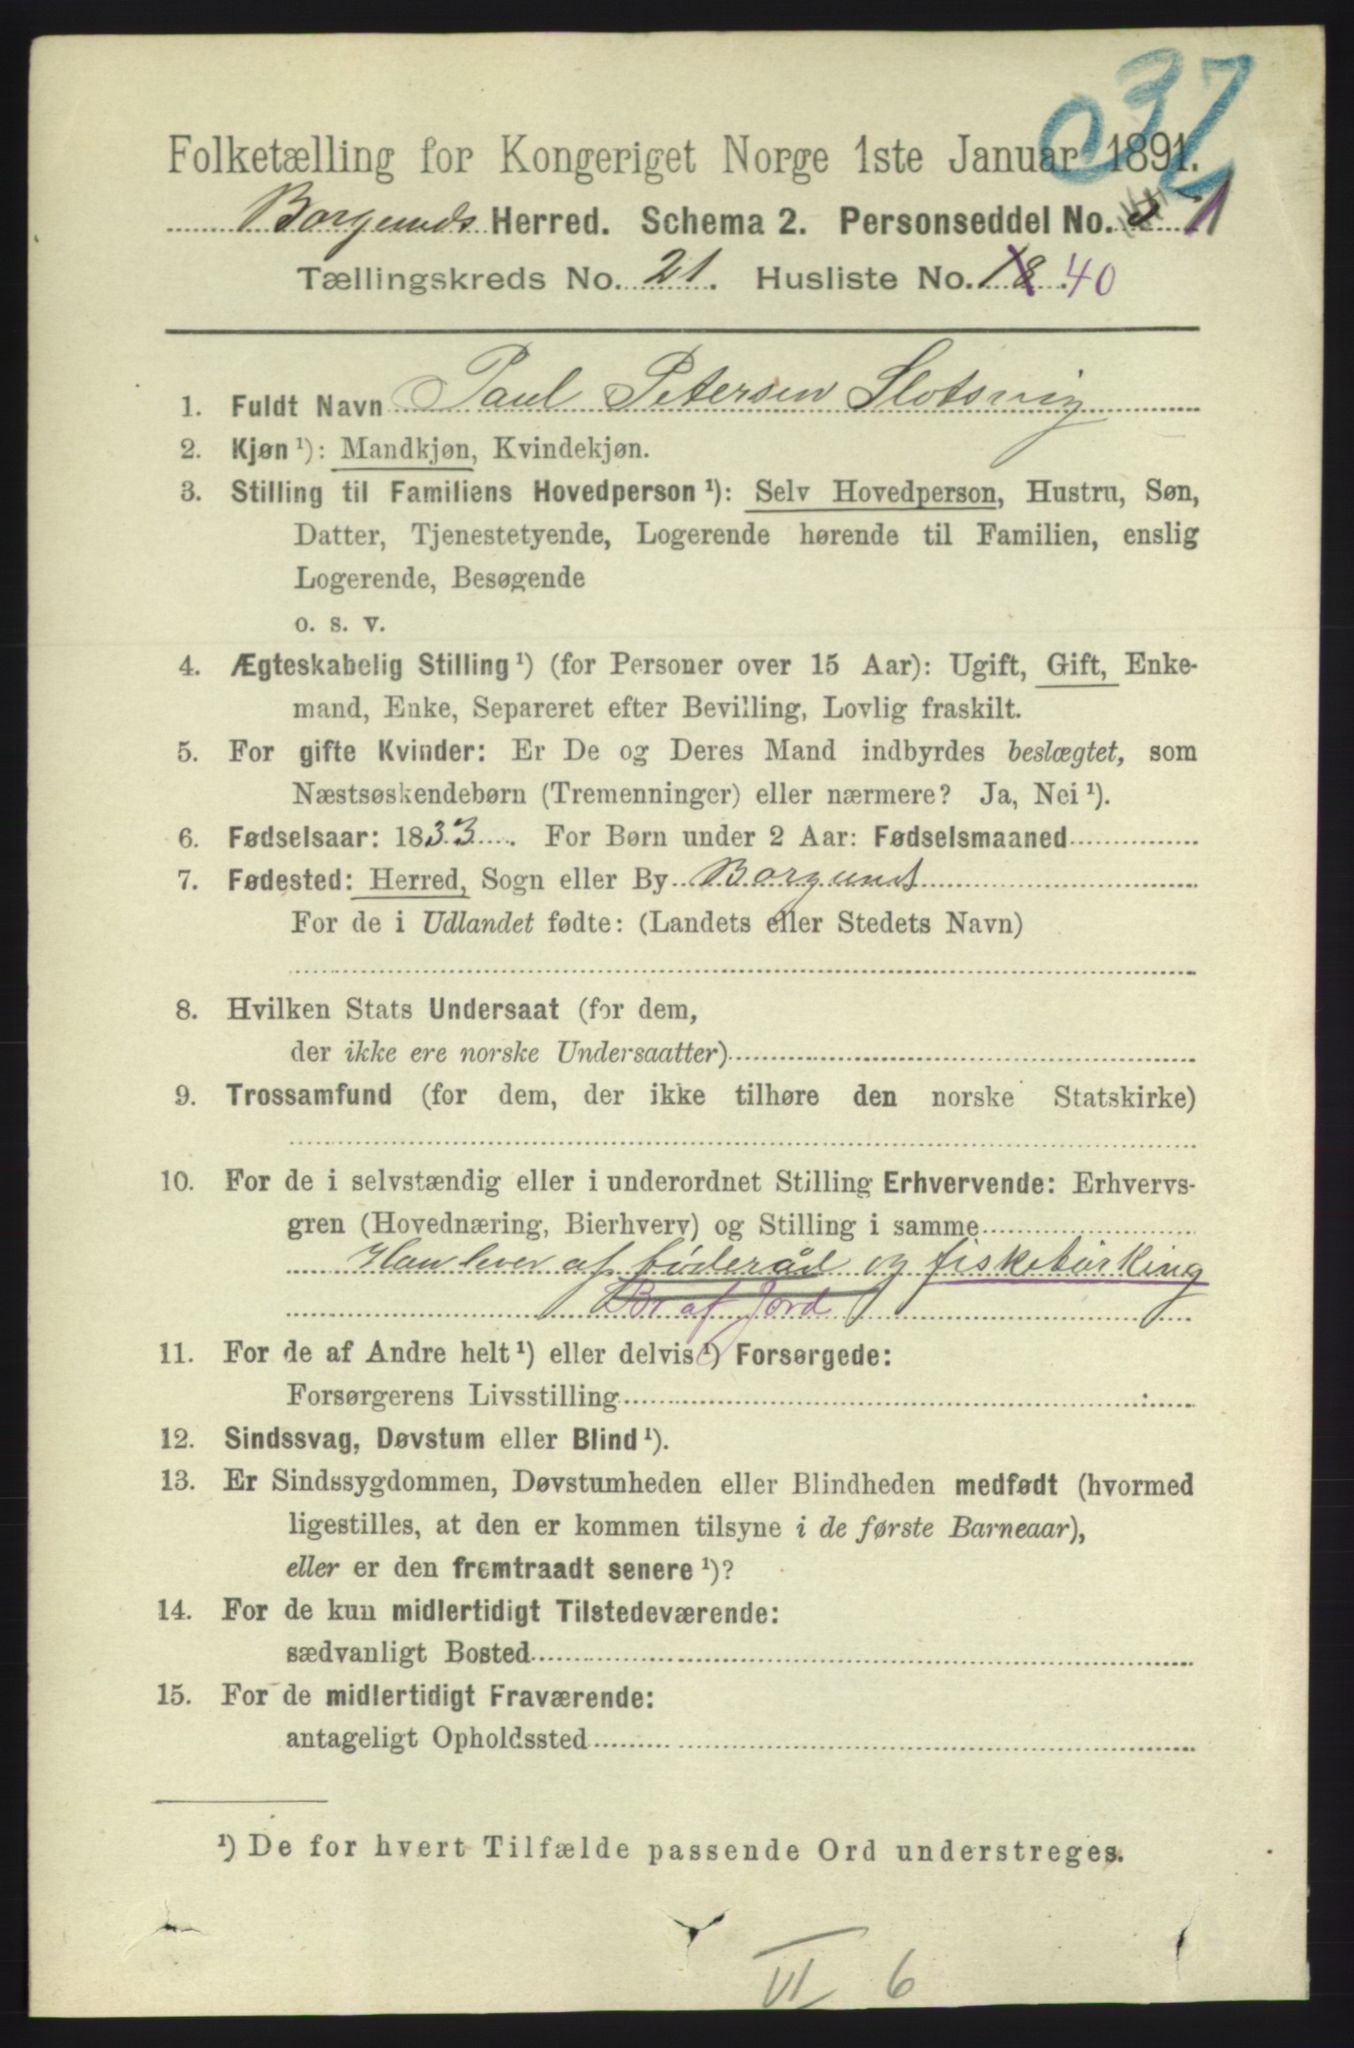 032
Folketælling for Kongeriget Norge 1ste Januar 1891.
Borgunds Herred. Schema 2. Personseddel No. 1
Tællingskreds No. 21. Husliste No. 18. 40
1. Fuldt Navn Paul Petersen Slotsvig
2. Kjøn¹): Mandkjøn, Kvindekjøn.
3. Stilling til Familiens Hovedperson¹): Selv Hovedperson, Hustru, Søn,
Datter, Tjenestetyende, Logerende hørende til Familien, enslig
Logerende, Besøgende
o. s. v.
4. Ægteskabelig Stilling¹) (for Personer over 15 Aar): Ugift, Gift, Enke-
mand, Enke, Separeret efter Bevilling, Lovlig fraskilt.
5. For gifte Kvinder: Er De og Deres Mand indbyrdes beslægtet, som
Næstsøskendebørn (Tremenninger) eller nærmere? Ja, Nei¹).
6. Fødselsaar: 1833. For Børn under 2 Aar: Fødselsmaaned
7. Fødested: Herred, Sogn eller By Borgund
For de i Udlandet fødte: (Landets eller Stedets Navn)
8. Hvilken Stats Undersaat (for dem,
der ikke ere norske Undersaatter)
9. Trossamfund (for dem, der ikke tilhøre den norske Statskirke)
10. For de i selvstændig eller i underordnet Stilling Erhvervende: Erhvervs-
gren (Hovednæring, Bierhverv) og Stilling i samme
Han lever af føderåd og fiskebirking
Br af Jord
11. For de af Andre helt¹) eller delvis¹) Forsørgede:
Forsørgerens Livsstilling
12. Sindssvag, Døvstum eller Blind¹).
13. Er Sindssygdommen, Døvstumheden eller Blindheden medfødt (hvormed
ligestilles, at den er kommen tilsyne i de første Barneaar),
eller er den fremtraadt senere¹)?
14. For de kun midlertidigt Tilstedeværende:
sædvanligt Bosted
15. For de midlertidigt Fraværende:
antageligt Opholdssted
¹) De for hvert Tilfælde passende Ord understreges.
VI 6